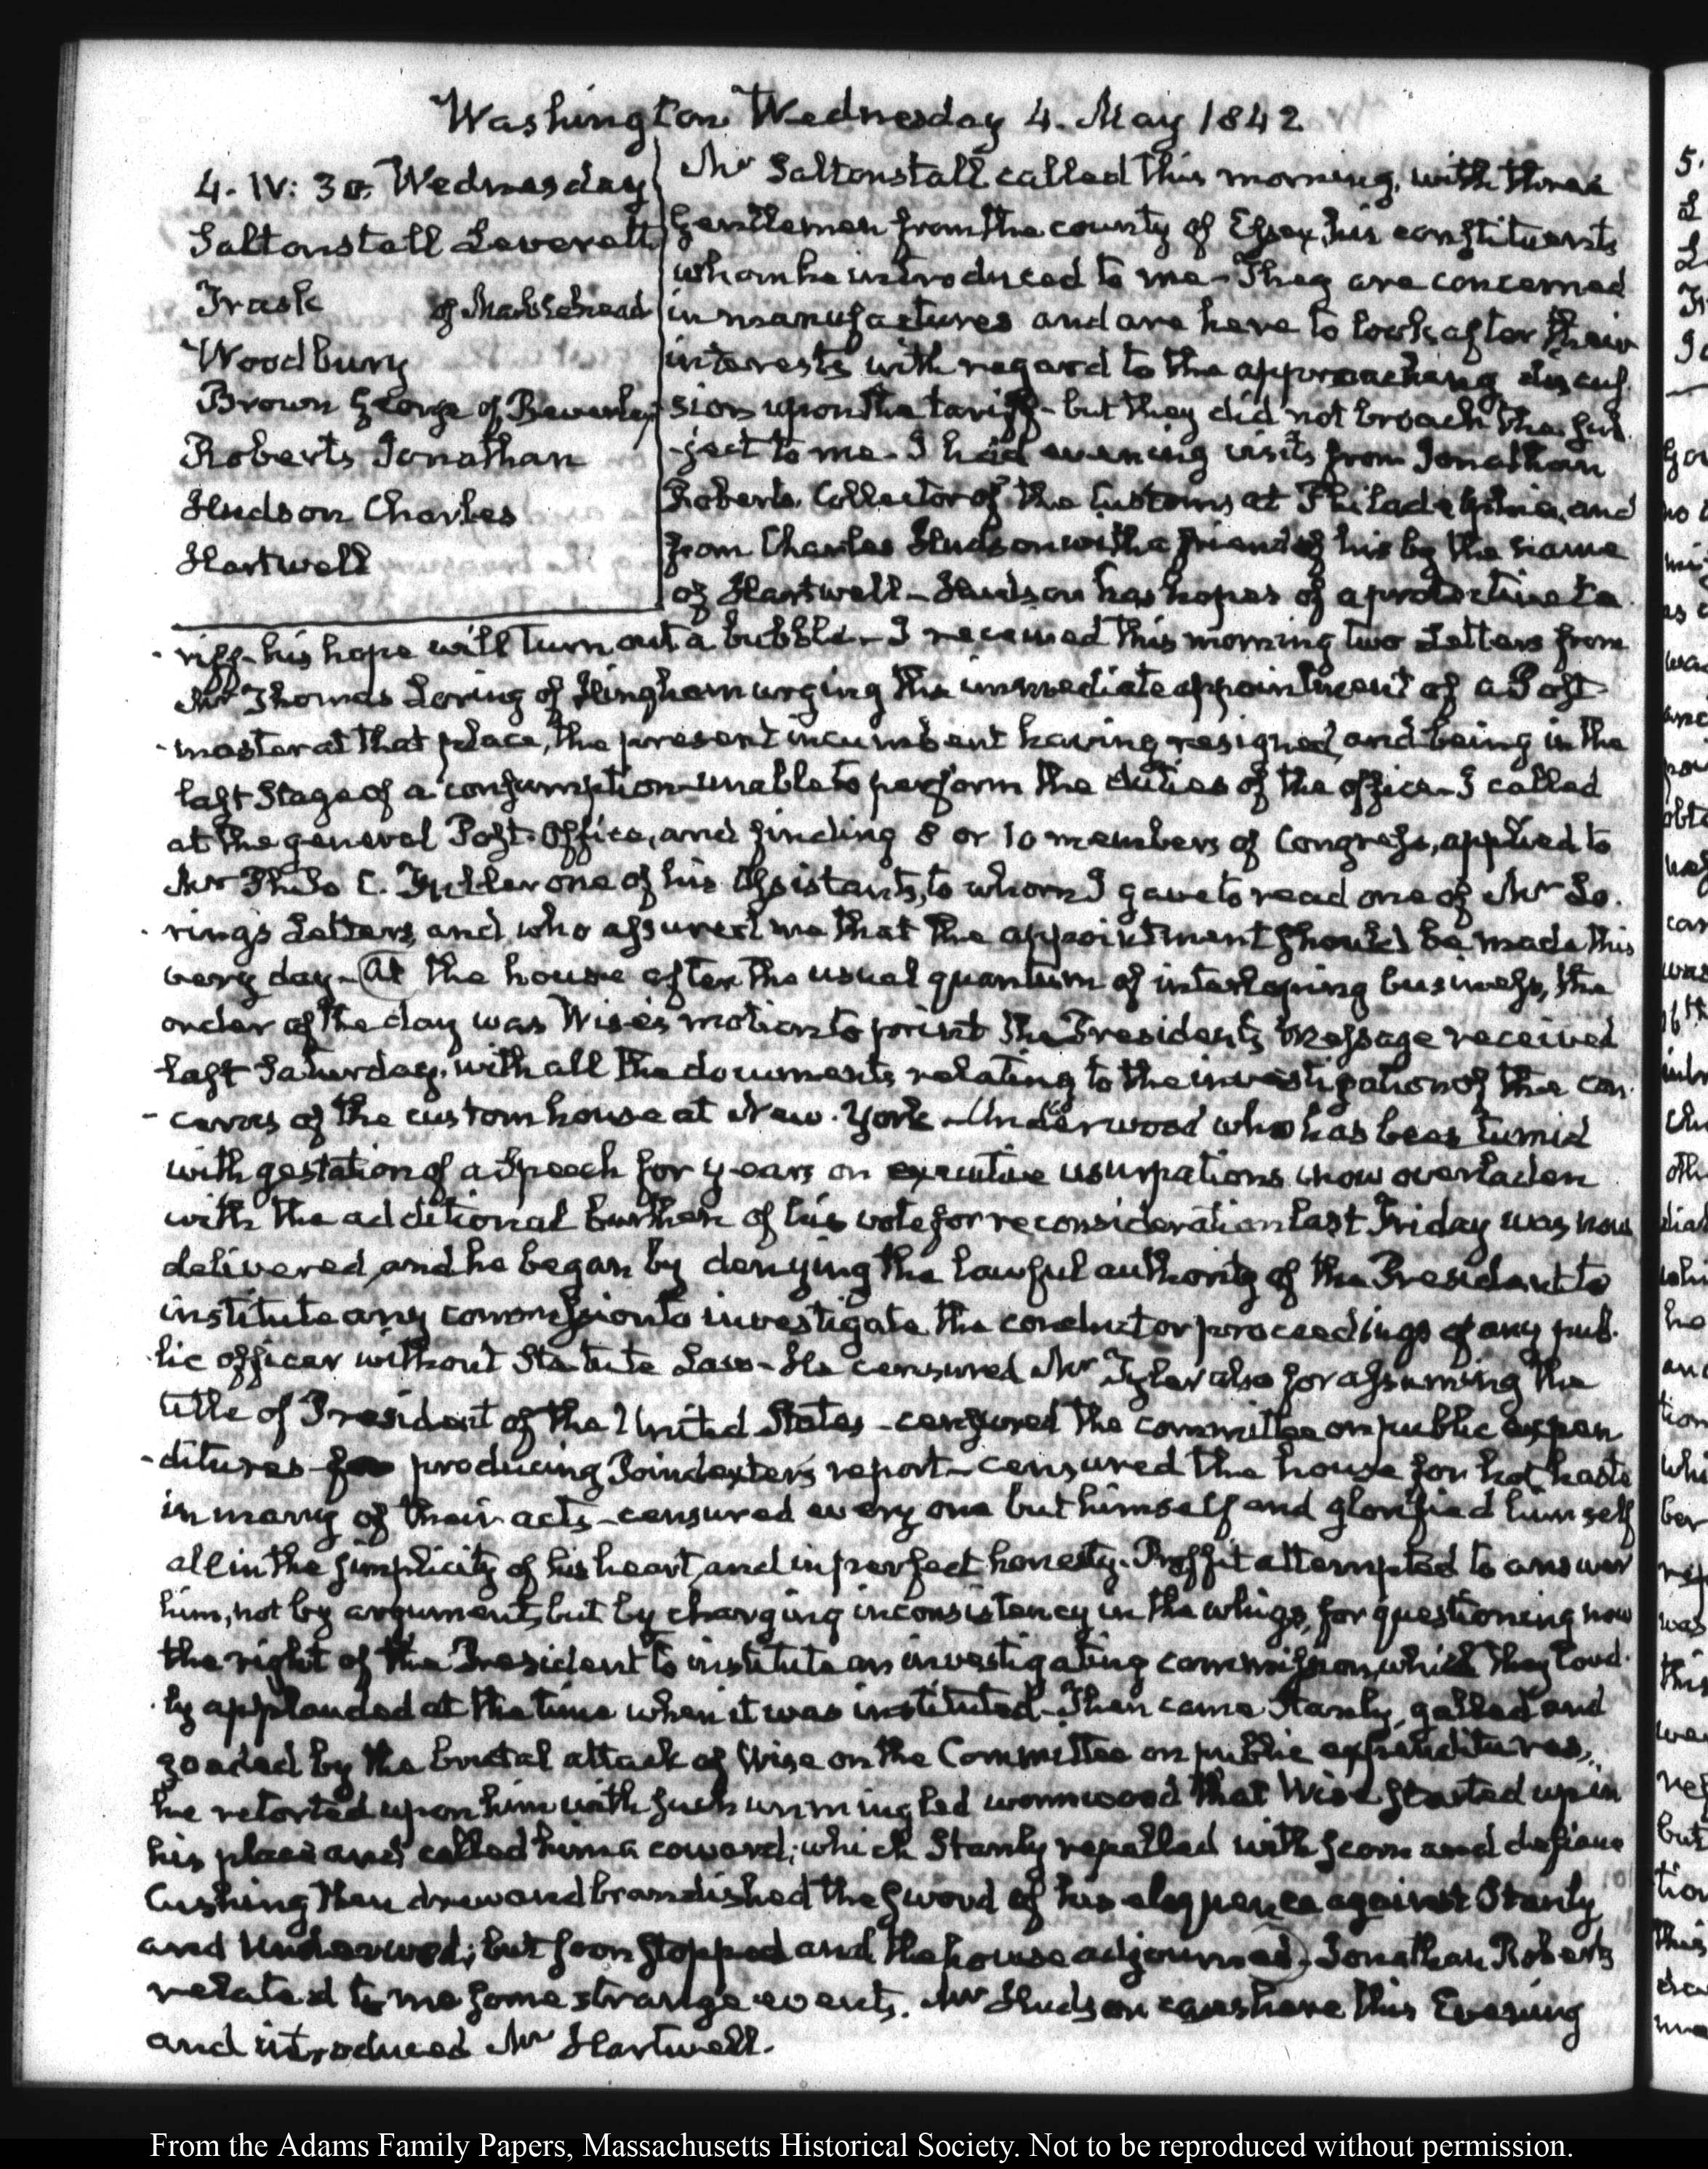 Washington Wednesday 4. May 1842
4. IV: 30. Wednesday
Saltonstall Leverett
Trask of Marblehead
Woodbury
Brown George of Beverley
Roberts Jonathan
Hudson Charles
Hartwell
Mr Saltonstall called this morning, with three
Gentlemen from the county of Essex, his constituents
whom he introduced to me - They are concerned
in manufactures and are here to look after their
interests with regard to the approaching discus-
sion upon the tariff - but they did not broach the sub-
-ject to me - I had evening visits from Jonathan
Roberts Collector of the Customs at Philadelphia, and
from Charles Hudson with a friend of his by the name
of Hartwell - Hudson has hopes of a protective ta-
-riff - his hope will turn out a bubble - I received this morning two Letters from
Mr Thomas Loring of Hingham urging the immediate appointment of a Post-
-master at that place, the present incumbent having resigned, and being in the
last stage of a consumption unable to perform the duties of the office - I called
at the general Post-Office, and finding 8 or 10 members of Congress, applied to
Mr Philo C. Fuller one of his Assistants, to whom I gave to read one of Mr Lo-
-ring's Letters, and who assured me that the appointment should be made this
very day - At the house after the usual quantum of interloping business, the
order of the day was Wise's motion to print the President's Message received
last Saturday, with all the documents relating to the investigation of the con-
-cerns of the custom house at New-York - Underwood who has been tumid
with gestation of a Speech for years on executive usurpations now overladen
with the additional burthen of his vote for reconsideration last Friday was now
delivered, and he began by denying the lawful authority of the President to
institute any commission to investigate the conduct or proceedings of any pub-
-lic officer without Statute Law - He censured Mr Tyler also for assuming the
title of President of the United States - censured the committee on public expen
-ditures for producing Poindexter's report - censured the house for hot haste
in many of their acts - censured every one but himself and glorified himself
all in the simplicity of his heart, and in perfect honesty. Proffit attempted to answer
him, not by argument, but by charging inconsistency in the whigs, for questioning now
the right of the President to institute an investigating commission, which they loud-
-ly applauded at the time when it was instituted - Then came Stanly, galled and
goaded by the brutal attack of Wise on the Committee on public expenditures,
he retorted upon him with such unmingled wormwood that Wise started up in
his place and called him a coward; which Stanly repelled with scorn and defiance
Cushing then drew and brandished the sword of his eloquence against Stanly
and Underwood; but soon stopped and the house adjourned. Jonathan Roberts
related to me some strange events. Mr Hudson was here this Evening
and introduced Mr Hartwell.
From the Adams Family Papers, Massachusetts Historical Society. Not to be reproduced without permission.